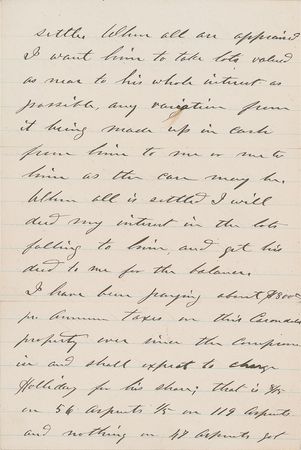 settle. When all are appraised
I want him to take lots valued
as near to his whole interest as
possible, any variation from
it being made up in cash
from him to me or me to
him as the case may be.
When all is settled I will
deed my interest in the lots
falling to him and get his
deed to me for the balance.
I have been paying about $300
per annum taxes on this Carondelet
property ever since the compromise
and shall expect to charge
Holliday for his share; that is
on 56 arpents 1/5 on 112 arpents
and nothing on 47 arpents got